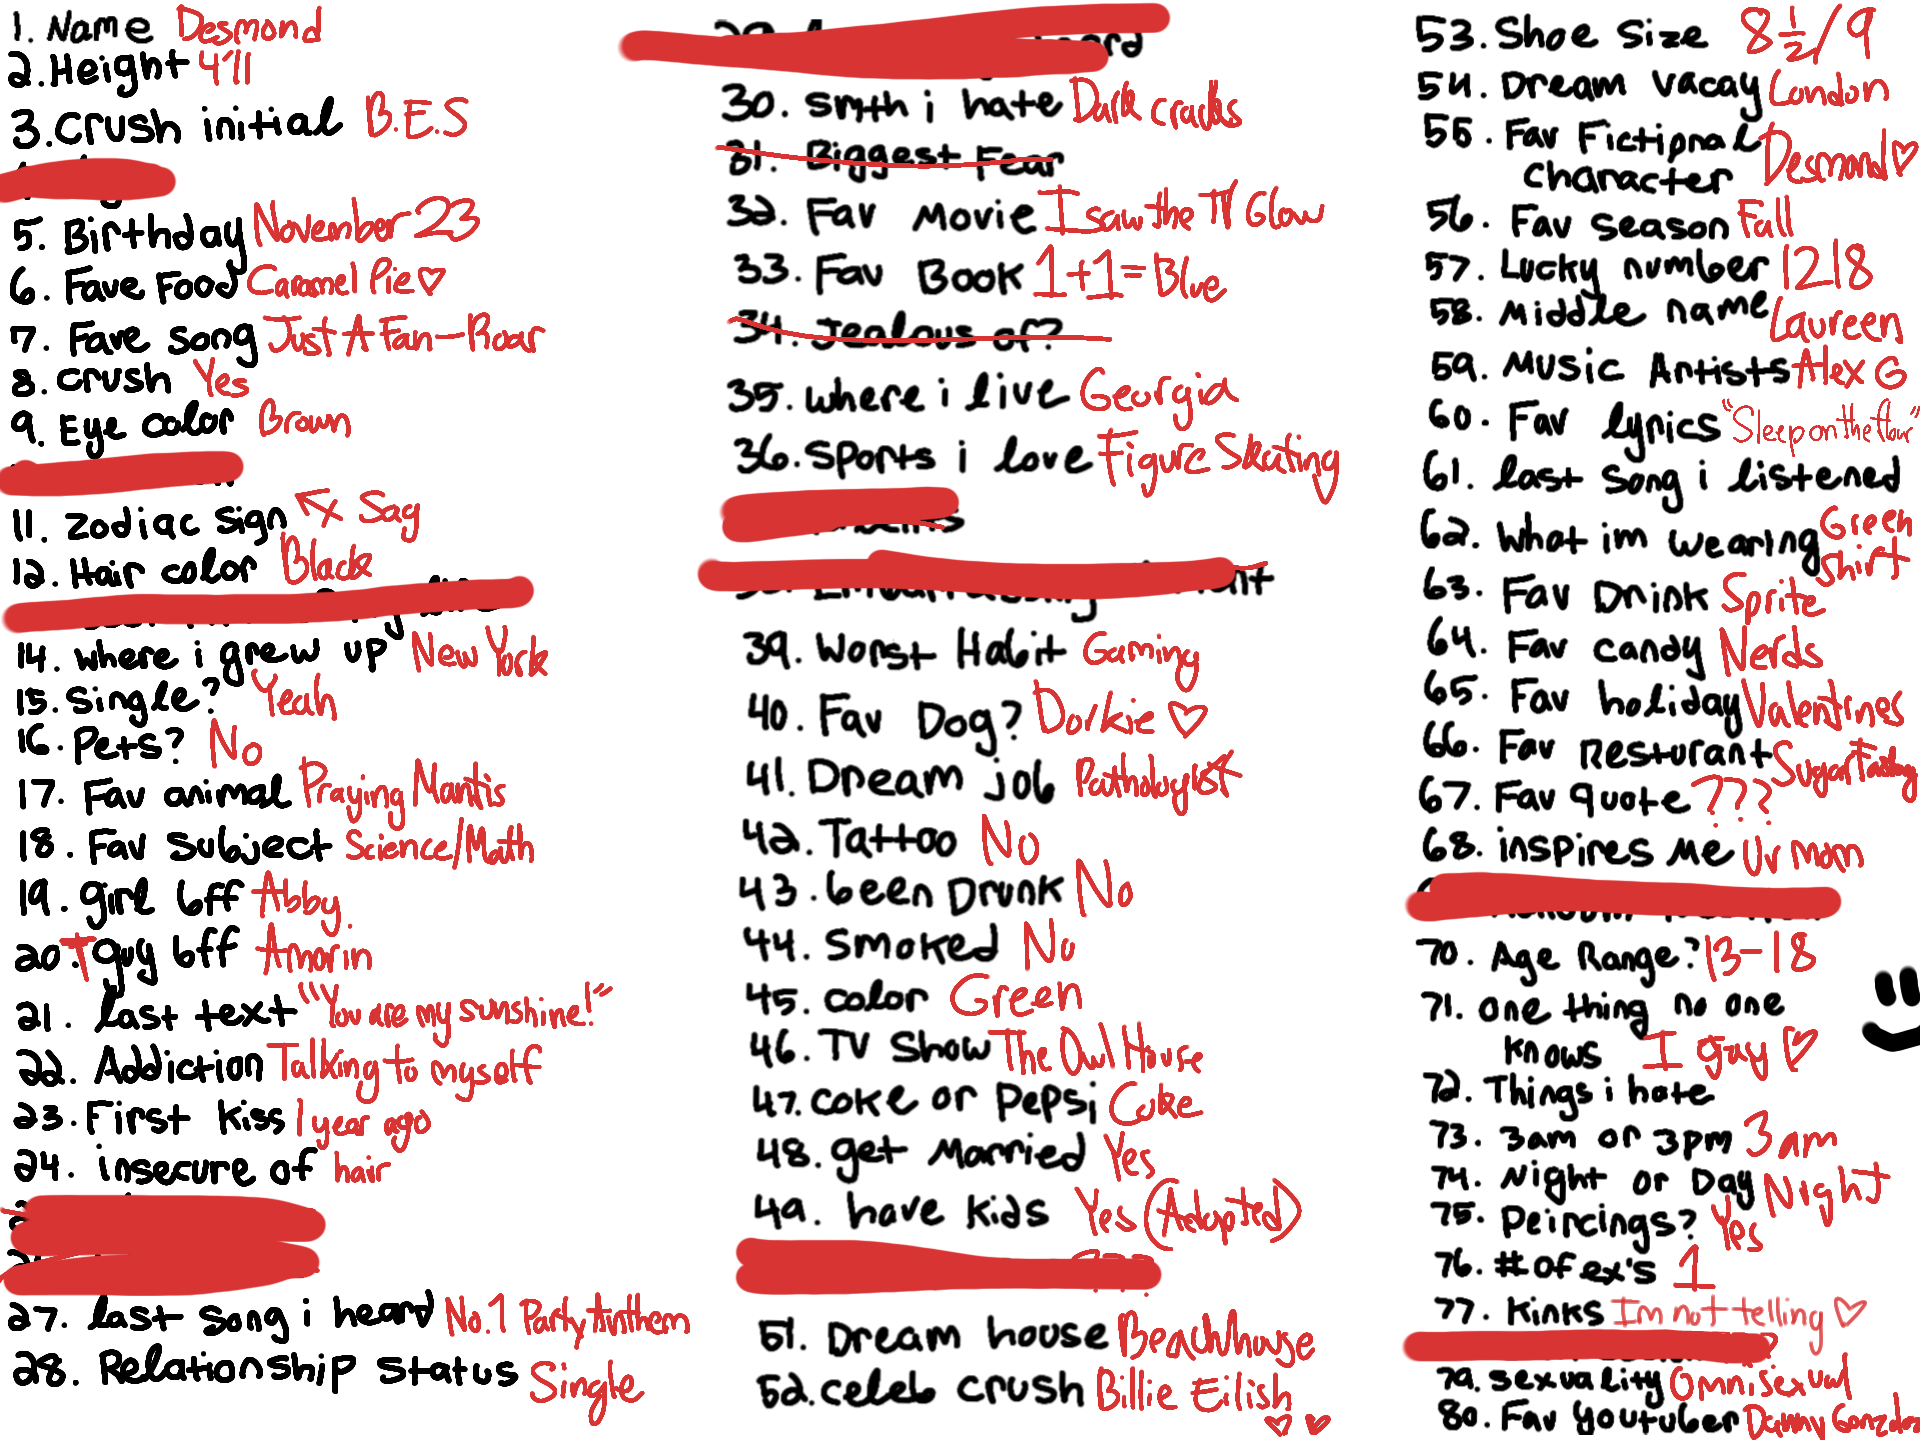 1. Name Desmond
2. Height 4'11
3. Crush initial B.E.S
5. Birthday November 23
6. Fave Food Caramel Pie♡
7. Fave song Just A Fan-Roar
8. crush Yes
9. Eye color Brown
11. Zodiac sign Sag
12. Hair color Black
14. where i grew up New York
15. Single? Yeah
16. Pets? No
17. Fav animal Praying Mantis
18. Fav subject Science/Math
19. girl bff Abby.
20. T guy bff Amorin
21. last text "You are my sunshine!"
22. Addiction Talking to myself
23. First kiss 1 year ago
24. insecure of hair
27. last song i heard No.1 Party Anthem
28. Relationship status Single
30. smth i hate Dark cracks
31. Biggest Fear
32. Fav Movie I saw the TV Glow
33. Fav Book 1+1=Blue
34. Jealous of?
35. where i live Georgia
36. Sports i love Figure Skating
39. Worst Habit Gaming
40. Fav Dog? Dorkie ♡
41. Dream job Pathologist
42. Tattoo No
43. been Drunk No
44. Smoked No
45. color Green
46. TV Show The Owl House
47. coke or Pepsi Coke
48. get Married Yes
49. have kids Yes (Adopted)
51. Dream house Beachhouse
52. celeb crush Billie Eilish
♡ ♡
53. Shoe Size 8 1/2/9
54. Dream vacay London
55. Fav Fictional
character Desmond♡
56. Fav season Fall
57. Lucky number 1218
58. Middle name Laureen
59. Music Artists Alex G
60. Fav lyrics "Sleep on the flour"
61. last song i listened
62. What im wearing Green
shirt
63. Fav Drink Sprite
64. Fav candy Nerds
65. Fav holiday Valentines
66. Fav Resturant Sugar Factory
67. Fav quote ???
68. inspires me Ur mom
70. Age Range? 13-18
71. one thing no one
knows I gay ♡
72. Things i hate
73. 3am or 3pm 3am
74. Night or Day Night
75. Peircings? Yes
76. # of ex's 1
77. Kinks Im not telling ♡
79. sexuality Omnisexual
80. Fav youtuber Danny Gonzalez